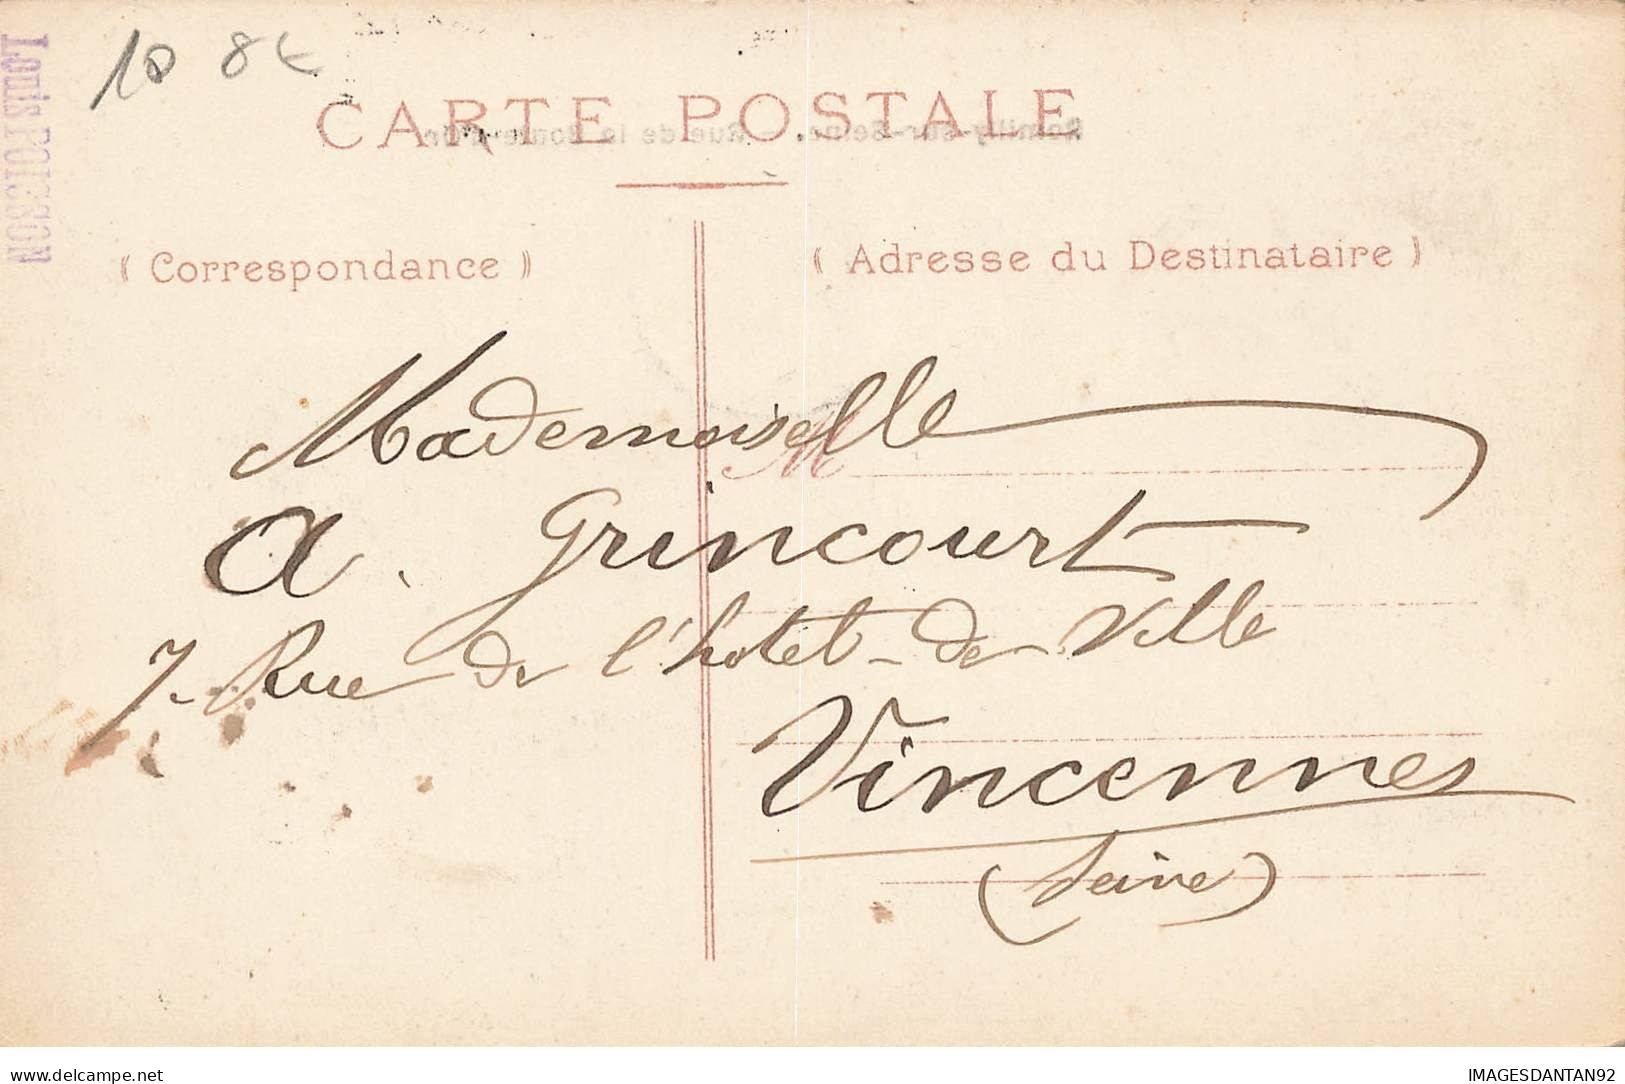 10 8€
Louis POISSON
CARTE POSTALE
Romilly-sur-Seine. - Rue de la Boule d'Or
( Correspondance )
( Adresse du Destinataire )
M
Mademoiselle
A. Grincourt
7. Rue de l'hotel-de Ville
Vincennes
(Seine)
delcampe.net
IMAGESDANTAN92